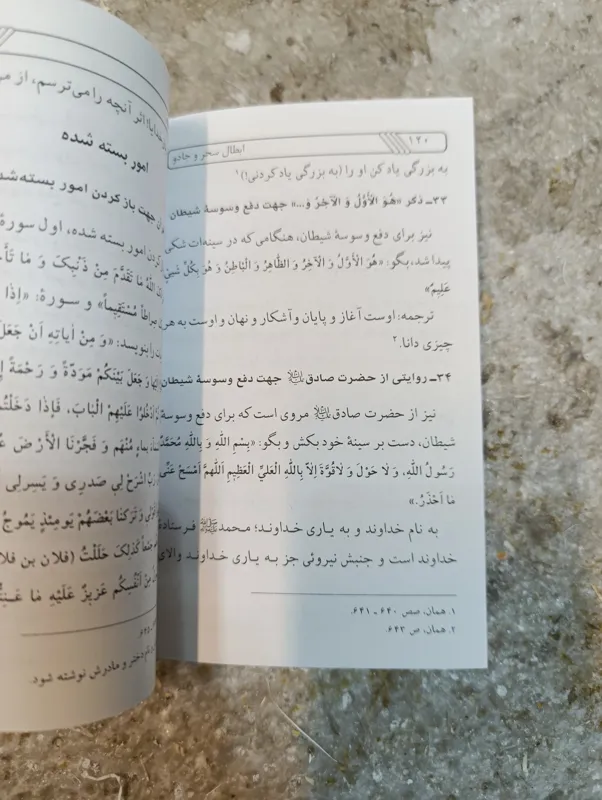 ۱۲۰
ابطال سحر و جادو
به بزرگی یاد کن او را (به بزرگی یاد کردنی!)۱
۳۳ـ ذکر «هُوَ الْأَوَّلُ وَ الْآخِرُ وَ...» جهت دفع وسوسهٔ شیطان
نیز برای دفع وسوسهٔ شیطان، هنگامی که در سینه‌ات شکی
پیدا شد، بگو: «هُوَ الْأَوَّلُ وَ الْآخِرُ وَ الظَّاهِرُ وَ الْبَاطِنُ وَ هُوَ بِكُلِّ شَيْءٍ
عَلِيمٌ»
ترجمه: اوست آغاز و پایان و آشکار و نهان و اوست به هر
چیزی دانا.۲
۳۴ـ روایتی از حضرت صادق جهت دفع وسوسهٔ شیطان
نیز از حضرت صادق مروی است که برای دفع وسوسهٔ
شیطان، دست بر سینهٔ خود بکش و بگو: «بِسْمِ اللهِ وَ بِاللهِ مُحَمَّدٌ
رَسُولُ اللهِ، وَ لَا حَوْلَ وَ لَاقُوَّةَ إِلَّا بِاللهِ الْعَلِيِّ الْعَظِيمِ اَللّهُمَّ أَمْسَحْ عَنِّي
مَا أَحْذَرُ.»
به نام خداوند و به یاری خداوند؛ محمد فرستادهٔ
خداوند است و جنبش نیروئی جز به یاری خداوند والای
۱. همان، صص ۶۴۰ ـ ۶۴۱.
۲. همان، ص ۶۴۳.
خدایا! اثر آنچه را می‌ترسم، از
امور بسته شده
جهت باز کردن امور بسته‌شده
کردن امور بسته شده، اول سورهٔ
اللهُ مَا تَقَدَّمَ مِنْ ذَنْبِكَ وَ مَا
صِراطاً مُسْتَقِيماً» و سوره: «إِذَا
را بنویسد: «وَ مِنْ اٰيَاتِهِ اَنْ
وَ جَعَلَ بَيْنَكُمْ مَوَدَّةً وَ رَحْمَةً
ادْخُلُوا عَلَيْهِمُ الْبَابَ، فَإِذَا
بِمَاءٍ مُنْهَمِرٍ وَ فَجَّرْنَا الْأَرْضَ
اشْرَحْ لِي صَدْرِي وَ يَسِّرْلِي
وَ تَرَكْنَا بَعْضَهُمْ يَوْمَئِذٍ يَمُوجُ
جَمْعاً كَذَلِكَ حَلَلْتُ (فلان بن
مِنْ أَنْفُسِكُمْ عَزِيزٌ عَلَيْهِ مَا
دختر و مادرش نوشته شود.